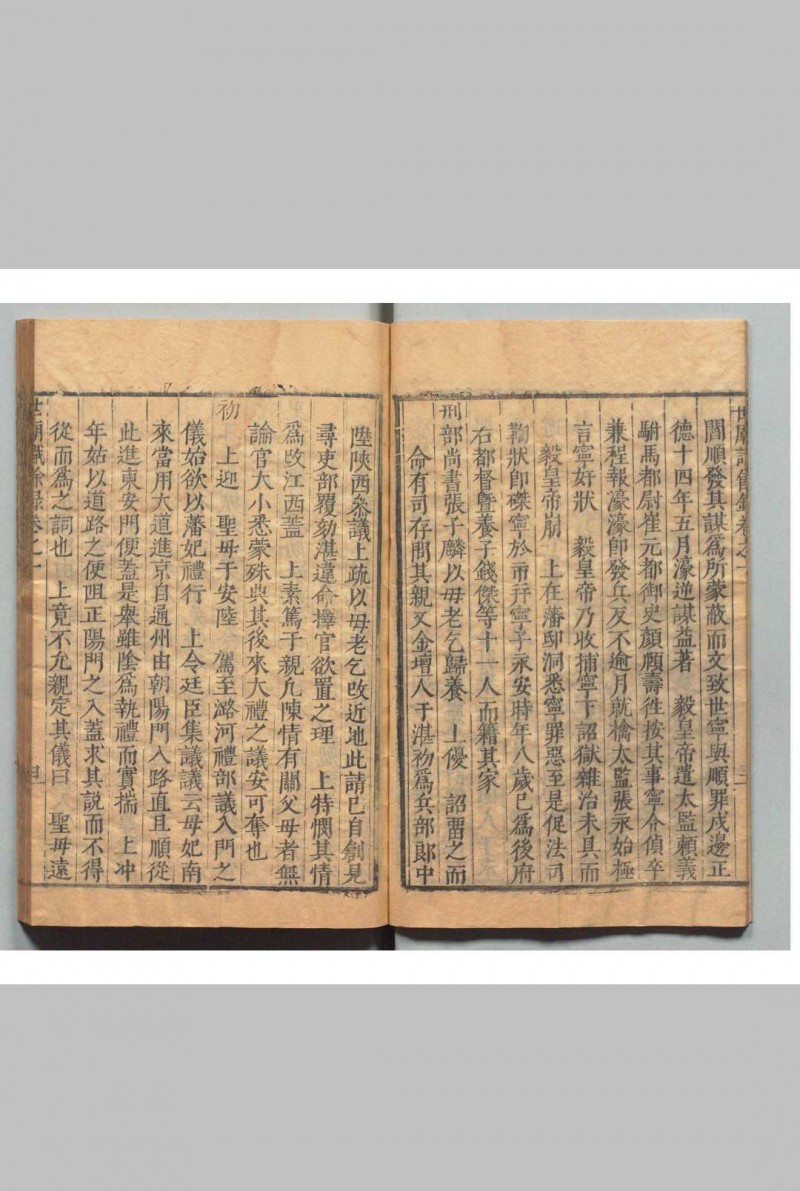 閣順發其謀爲所蒙蔽而文致世寧與順罪戍邊正
德十四年五月濠逆謀益著　毅皇帝遣太監賴義
駙馬都尉崔元都御史顏頥壽徃按其事寧令偵卒
兼程報濠濠卽發兵反不逾月就擒太監張永始極
言寧奸狀　毅皇帝乃收捕寧下詔獄雜治未具而
毅皇帝崩　上在藩邸洞悉寧罪惡至是促法司
鞫狀卽磔寧於市幷寧子永安時年八歲已爲後府
右都督曁養子錢傑等十一人而籍其家
刑部尚書張子麟以母老乞歸養　上優　詔畱之而
命有司存問其親又金壇人于湛初爲兵部郎中
陞陝西叅議上疏以母老乞攺近地此請已自創見
尋吏部覆劾湛違命擇官欲置之理　上特憫其情
爲攺江西蓋　上素篤于親凡陳情有關父母者無
論官大小悉蒙殊典其後來大禮之議安可奪也
初　上迎　聖母于安陸　駕至潞河禮部議入門之
儀始欲以藩妃禮行　上令廷臣集議議云母妃南
來當用大道進京自通州由朝陽門入路直且順從
此進東安門便蓋是舉雖陰爲執禮而實揣　上冲
年姑以道路之便阻正陽門之入蓋求其説而不得
從而爲之詞也　上竟不允親定其儀曰　聖母遠
世廟識餘錄卷之一